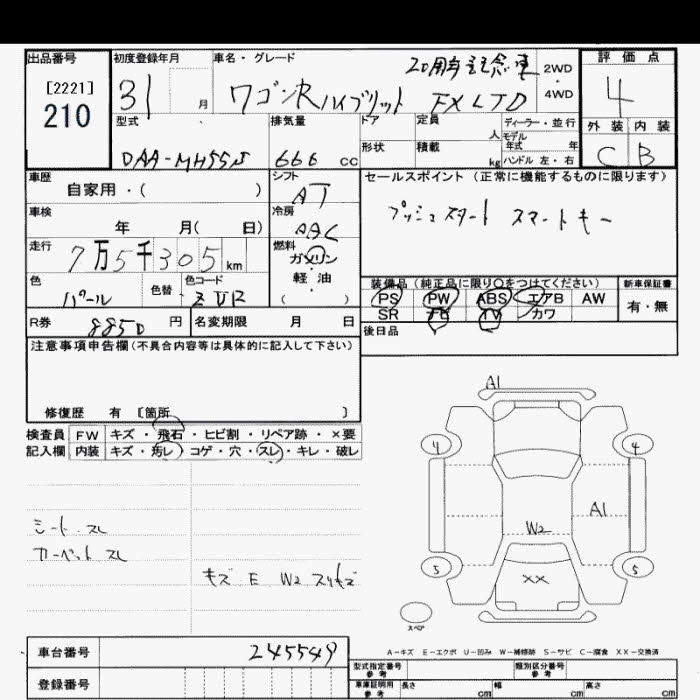 出品番号 初度登録年月 車名・グレード 20周年記念車 2WD 評価点
[2221] 31 月 ワゴンRハイブリット FX LTD 4WD 4
210
型式 排気量 ドア 定員 人 ディーラー・並行 外装 内装
DAA-MH55S 666 cc 形状 積載 kg モデル年式 年 C B
ハンドル 左・右
車歴 シフト セールスポイント (正常に機能するものに限ります)
自家用・( ) AT
車検 冷房 プッシュスタート スマートキー
年 月( 日) AAC
走行 7万5千305km 燃料
ガソリン・軽油
( )
色 色替 色コード 装備品(純正品に限り○をつけてください) 新車保証書
パール ZVR PS PW ABS エアB AW 有・無
SR PG TV カワ
R券 8850 円 名変期限 月 日 後日品
注意事項申告欄(不具合内容等は具体的に記入して下さい)
修復歴 有 [箇所 ]
検査員 FW キズ・飛石・ヒビ割・リペア跡・×要
記入欄 内装 キズ・汚レ・コゲ・穴・スレ・キレ・破レ
A1
4 4
A1
W2
5 5
XX
シート スレ
カーペット スレ
キズ E W2 スリキズ
スペア
A-キズ E-エクボ U-凹み W-補修跡 S-サビ C-腐食 XX-交換済
車台番号 245549
登録番号
型式指定番号 参考 類別区分番号 参考
車庫証明用 参考 長さ cm 幅 cm 高さ cm